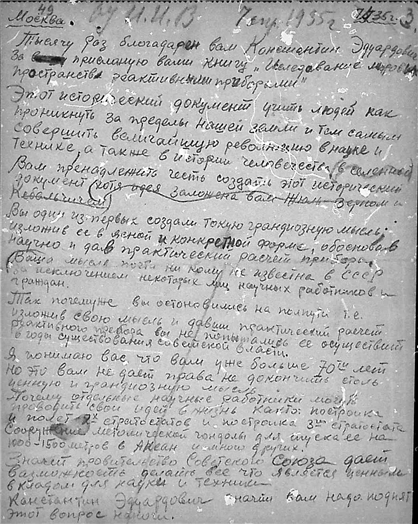 Москва.
49
7 апр. 1935 г.
Тысячу раз благодарен вам Константин Эдуардович
За присланую вами книгу „Исследование мировых
пространств реактивными приборами"
Этот исторический документ учить людей как
проникнуть за пределы нашей земли и тем самым
совершить величайшую революцию в науке и
технике, а также в истории человечества
Вам пренадлежать честь создать этот исторический
документ (хотя идея заложена вам Жюль Верном и
Кебальчичом)
Вы один из первых создали токую грандиозную мысль;
изложив ее в ясной и конкретной форме, обосновав
научно и дав практический расчет прибора.
(Ваша мысль почти ни кому не известна в СССР
за исключением некоторых лиц научных работников и
граждан.
Так почемуже вы остоновились на полпути т.е.
изложив свою мысль и давши практический расчет
реактивного прибора вы не попытались ее осуществить
в годы существования советской власти.
Я понимаю вас, что вам уже больше 70ти лет
но это вам не дает права не докончить столь
ценную и грандиозную мысль.
Почему отдельные научные работники могли
проводить свои идеи в жизнь както: постройка
и полет 2х стратостатов и постройка 3им стратостата
Сооружение гондолы для спуска ее на
под -1500 метров в Акеан и много других.
Значит правительство Советского Союза дает
возможность делать все что является ценным
вкладом для науки и техники
Канстантин Эдуардович значит вам надо поднять
этот вопрос